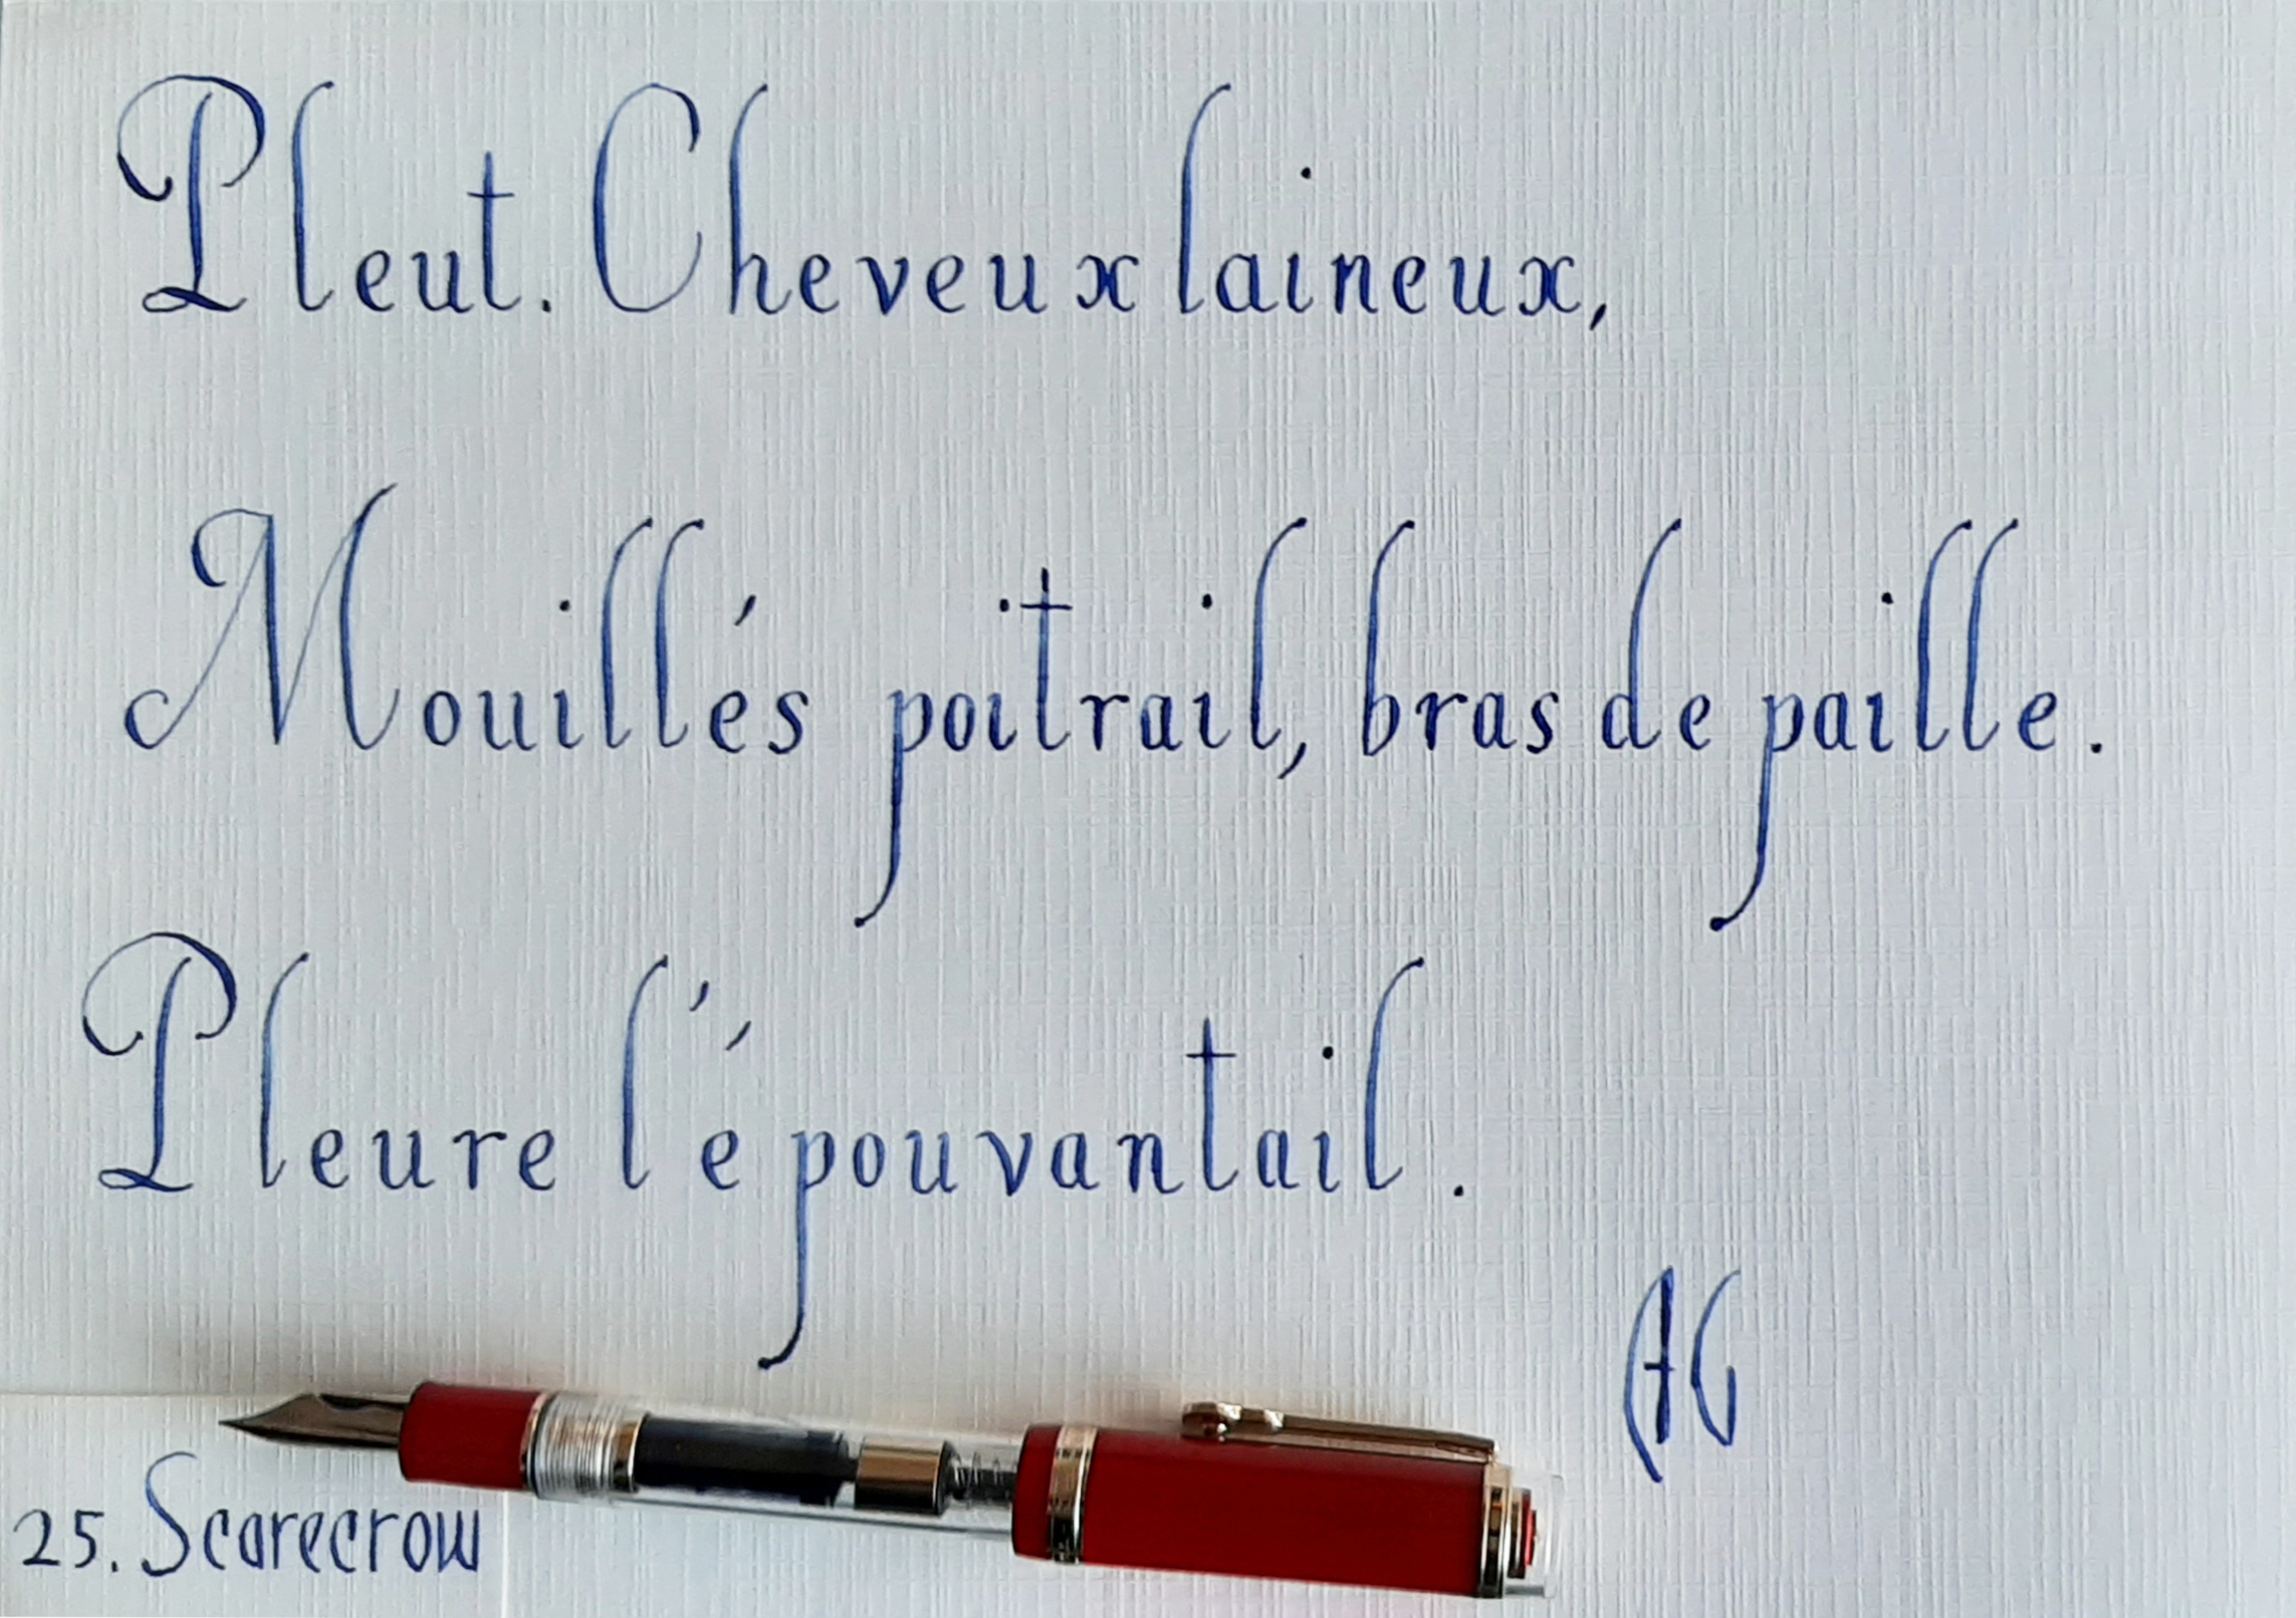 Pleut. Cheveux laineux,
Mouillés poitrail, bras de paille.
Pleure l'épouvantail.
AG
25. Scarecrow